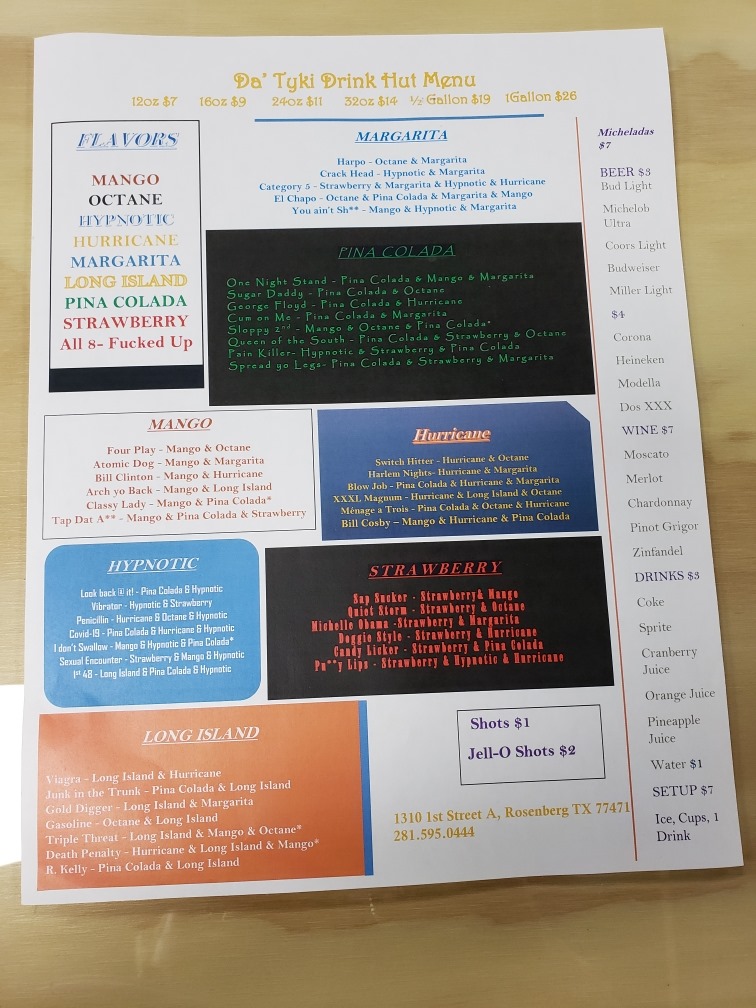 Da' Tyki Drink Hut Menu
12oz $7 16oz $9 24oz $11 32oz $14 ½ Gallon $19 1Gallon $26
FLAVORS
MANGO
OCTANE
HYPNOTIC
HURRICANE
MARGARITA
LONG ISLAND
PINA COLADA
STRAWBERRY
All 8- Fucked Up
MARGARITA
Harpo - Octane & Margarita
Crack Head - Hypnotic & Margarita
Category 5 - Strawberry & Margarita & Hypnotic & Hurricane
El Chapo - Octane & Pina Colada & Margarita & Mango
You ain't Sh** - Mango & Hypnotic & Margarita
PINA COLADA
One Night Stand - Pina Colada & Mango & Margarita
Sugar Daddy - Pina Colada & Octane
George Floyd - Pina Colada & Hurricane
Cum on Me - Pina Colada & Margarita
Sloppy 2nd - Mango & Octane & Pina Colada*
Queen of the South - Pina Colada & Strawberry & Octane
Pain Killer- Hypnotic & Strawberry & Pina Colada
Spread yo Legs- Pina Colada & Strawberry & Margarita
MANGO
Four Play - Mango & Octane
Atomic Dog - Mango & Margarita
Bill Clinton - Mango & Hurricane
Arch yo Back - Mango & Long Island
Classy Lady - Mango & Pina Colada*
Tap Dat A** - Mango & Pina Colada & Strawberry
Hurricane
Switch Hitter - Hurricane & Octane
Harlem Nights- Hurricane & Margarita
Blow Job - Pina Colada & Hurricane & Margarita
XXXL Magnum - Hurricane & Long Island & Octane
Ménage a Trois - Pina Colada & Octane & Hurricane
Bill Cosby – Mango & Hurricane & Pina Colada
HYPNOTIC
Look back @ it! - Pina Colada & Hypnotic
Vibrator - Hypnotic & Strawberry
Penicillin - Hurricane & Octane & Hypnotic
Covid-19 - Pina Colada & Hurricane & Hypnotic
I don't Swallow - Mango & Hypnotic & Pina Colada*
Sexual Encounter - Strawberry & Mango & Hypnotic
1st 48 - Long Island & Pina Colada & Hypnotic
STRAWBERRY
Sap Sucker - Strawberry& Mango
Quiet Storm - Strawberry & Octane
Michelle Obama -Strawberry & Margarita
Doggie Style - Strawberry & Hurricane
Candy Licker - Strawberry & Pina Colada
Pu**y Lips - Strawberry & Hypnotic & Hurricane
LONG ISLAND
Viagra - Long Island & Hurricane
Junk in the Trunk - Pina Colada & Long Island
Gold Digger - Long Island & Margarita
Gasoline - Octane & Long Island
Triple Threat - Long Island & Mango & Octane*
Death Penalty - Hurricane & Long Island & Mango*
R. Kelly - Pina Colada & Long Island
Shots $1
Jell-O Shots $2
1310 1st Street A, Rosenberg TX 77471
281.595.0444
Micheladas
$7
BEER $3
Bud Light
Michelob
Ultra
Coors Light
Budweiser
Miller Light
$4
Corona
Heineken
Modella
Dos XXX
WINE $7
Moscato
Merlot
Chardonnay
Pinot Grigor
Zinfandel
DRINKS $3
Coke
Sprite
Cranberry
Juice
Orange Juice
Pineapple
Juice
Water $1
SETUP $7
Ice, Cups, 1
Drink